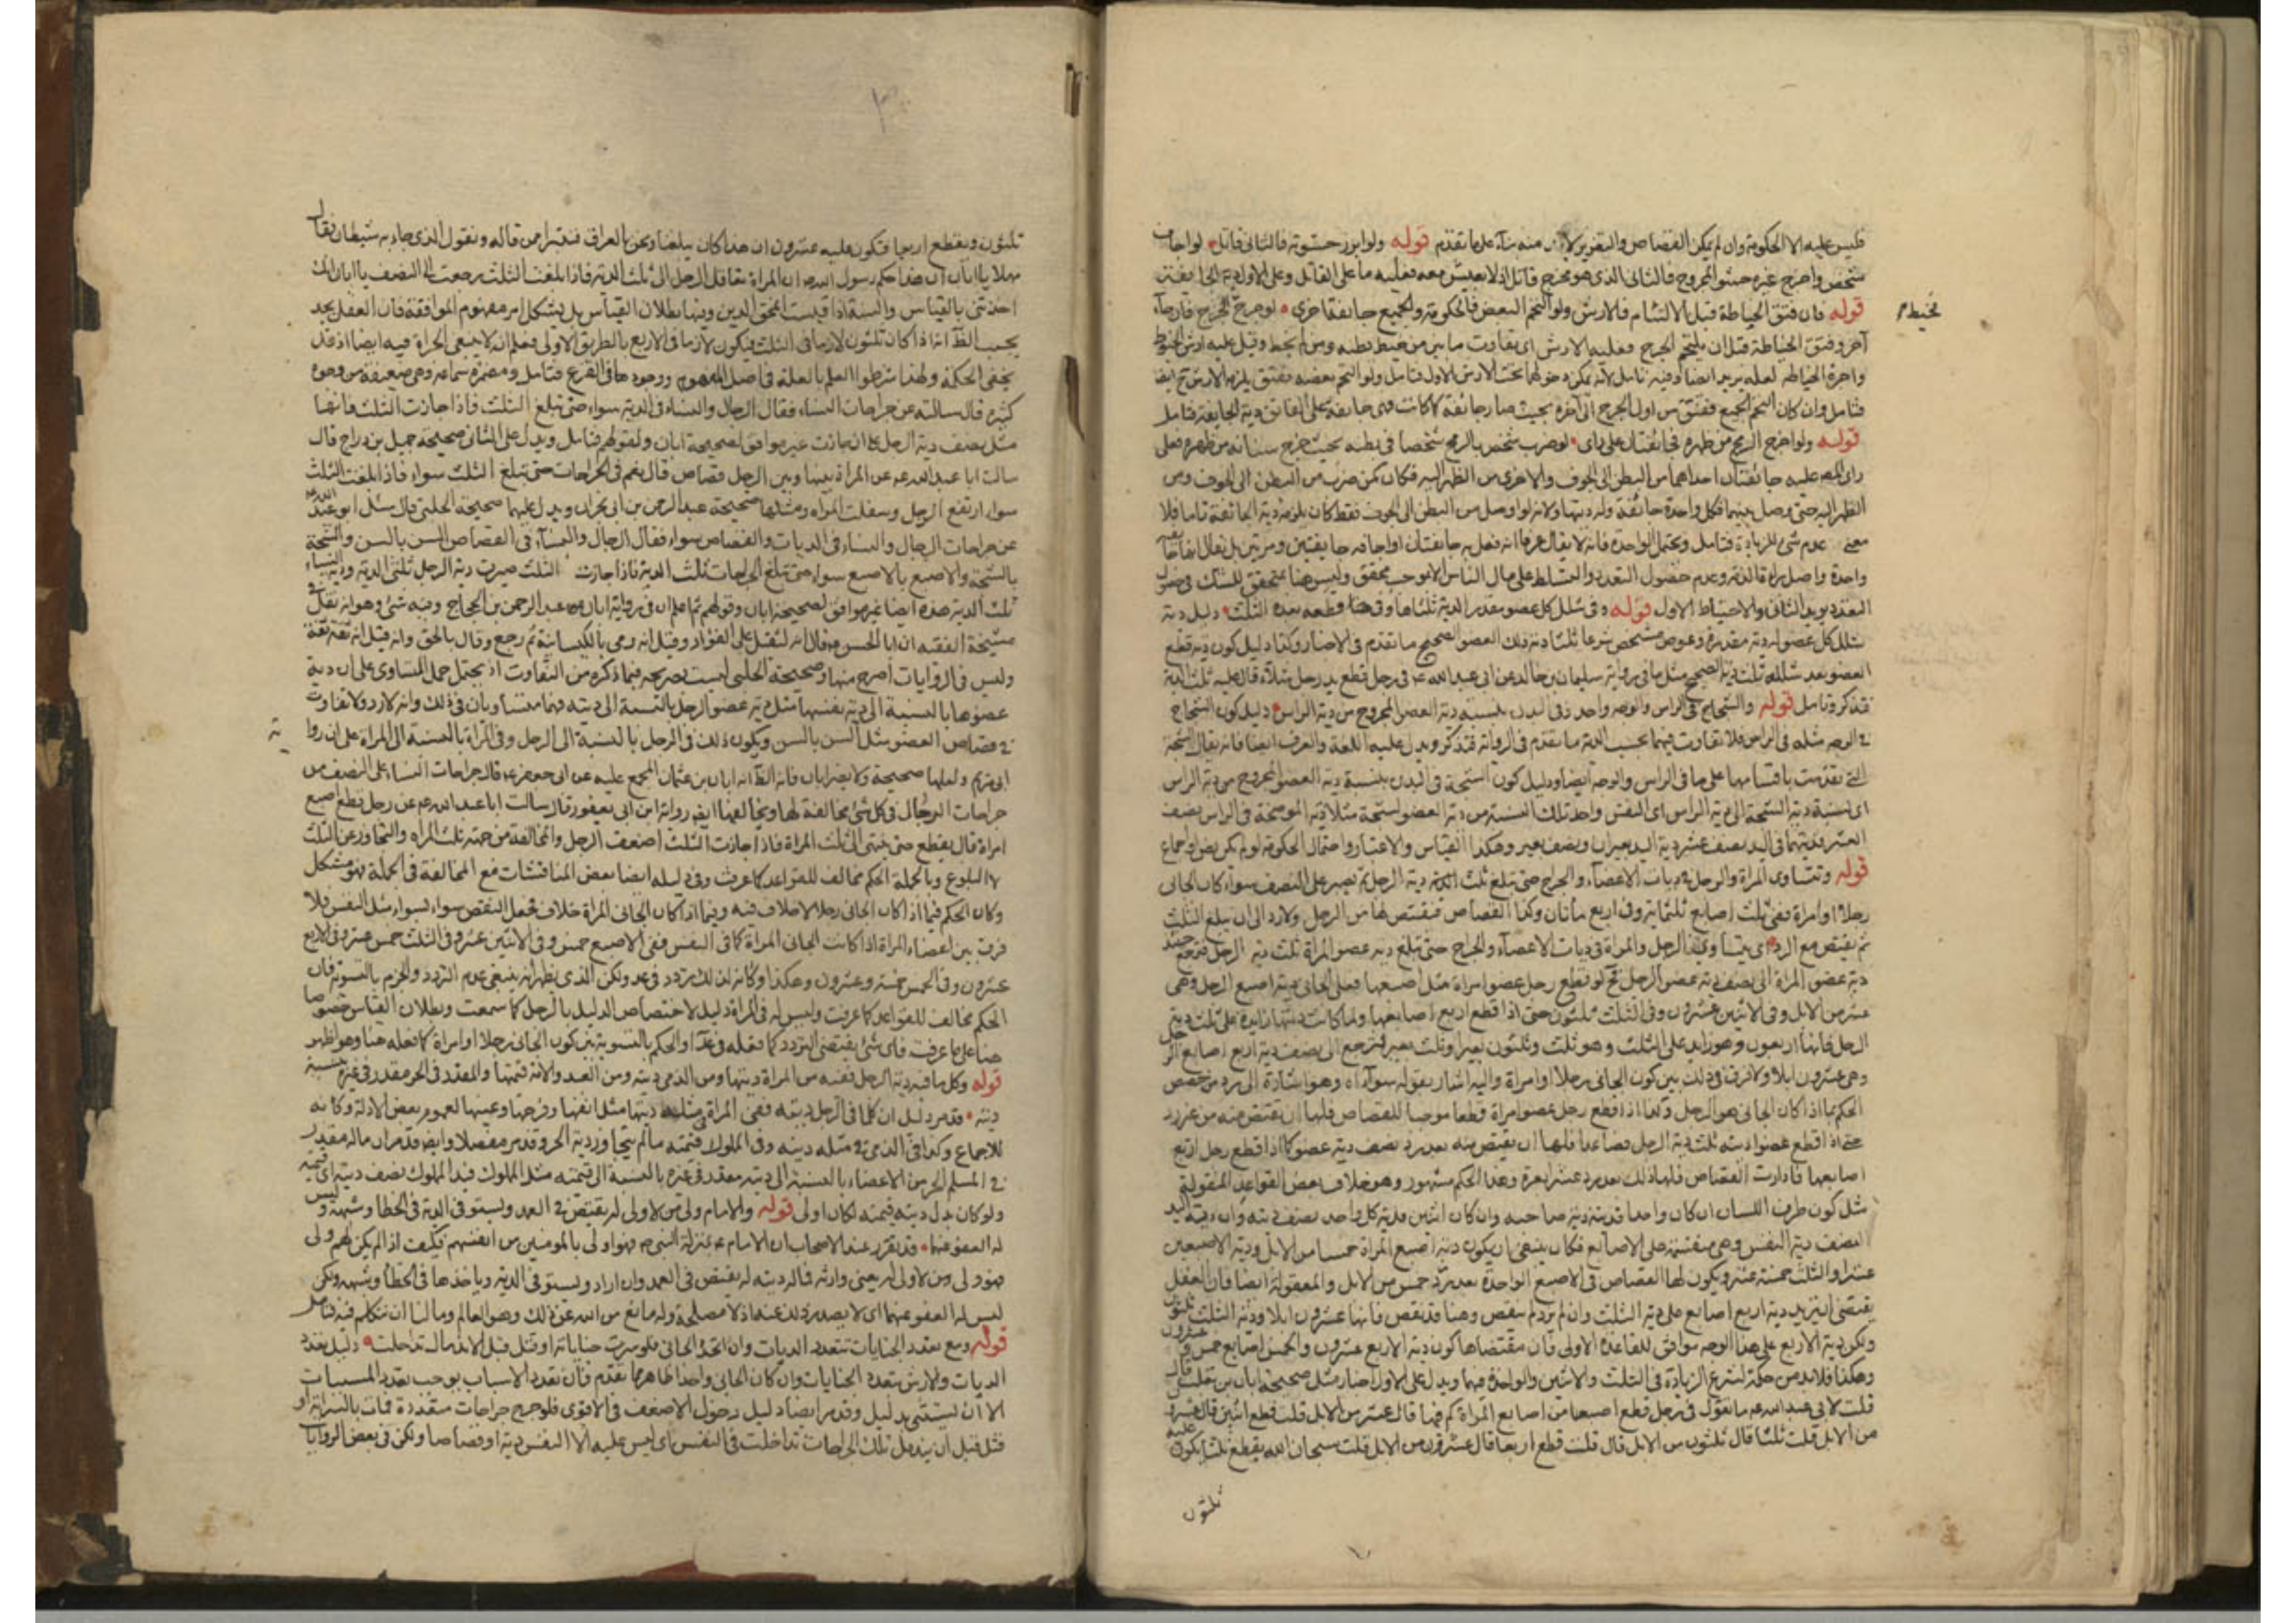 فليس عليه الا الحكومة وان لم يمكن القصاص والتعزير منه بناء على ما تقدم قوله ولو ابرز حشوته فالثاني قاتل لو اجاف
شخص واخرج غيره حشو المجروح فالثاني الذي هو مخرج قاتل اذ لا يعيش معه فعليه ما على القاتل وعلى الاول دية الجائفة
قوله فان فتق الخياطة قبل الالتئام فالارش ولو التحم البعض فالحكومة والجميع جائفة اخرى لو جرح فجاء
آخر وفتق الخياطة قبل ان يلتحم الجرح فعليه الارش اى تفاوت ما بين من خيط بطنه ومن لم يخط وقيل عليه ارش
واجرة الخياطة لعله يريد ايضا وفيه تامل لانه يمكن دخولها تحت الارش الاول فتامل ولو التحم بعضه ففتق يلزم الارش
فتامل وان كان التحم الجميع ففتق من اول الجرح الى آخره بحيث صار جائفة كما كانت فهى جائفة على الفاتق دية الجائفة فتامل
قوله ولو اخرج الرمح من ظهره فجائفتان على راى لو ضرب شخص بالرمح شخصا في بطنه بحيث خرج سنانه من ظهره فعلى
راى المصـ عليه جائفتان احداهما من البطن الى الجوف والاخرى من الظهر اليه فكان كمن ضرب من البطن الى الجوف ومن
الظهر اليه حتى وصل بينهما فكل واحدة جائفة وله ديتها ولانه لو اوصل من البطن الى الجوف فقط كان يلزمه دية الجائفة تاما فلا
معنى لعدم شئ للزيادة فتامل ويحتمل الواحدة فانه لا يقال عرفا انه فعل به جائفتان او اجافه جائفتين ومرتين بل يقال اجافه
واحدة واصل براءة الذمة وعدم حصول التعدد والتسلط على مال الناس الا بموجب محقق وليس هنا بمتحقق للشك في حصول
التعدد يويد الثاني والاحتياط الاول قوله وفى شلل كل عضو مقدر الدية ثلثاها وفى قطعه بعده الثلث دليل دية
شلل كل عضو له دية مقدرة وعوض مشخص شرعا ثلثا دية ذلك العضو الصحيح ما تقدم فى الاخبار وكذا دليل كون دية قطع
العضو بعد شلله ثلث دية الصحيح مثل ما فى رواية سليمان بن خالد عن ابى عبد الله ع فى رجل قطع يد رجل شلاء قال عليه ثلث الدية
فتذكر وتامل قوله والشجاج فى الراس والوجه واحد وفى البدن بنسبة دية العضو المجروح من دية الراس دليل كون الشجاج
فى الوجه مثله فى الراس فلا تفاوت فيهما بحسب الدية ما تقدم فى الرواية فتذكر ويدل عليه اللغة والعرف ايضا فانه يقال الشجة
التى تقدمت باقسامها على ما فى الراس والوجه ايضا ودليل كون الشجة فى البدن بنسبة دية العضو المجروح من دية الراس
اى نسبة دية الشجة الى دية الراس اى النفس واحد تلك النسبة من دية العضو لشجة مثلا دية الموضحة فى الراس نصف
العشر فديتهما فى اليد نصف عشر دية اليد بعيران ونصف بعير وهكذا القياس والاعتبار واحتمال الحكومة لو لم يكن نص واجماع
قوله وتتساوى المراة والرجل فى ديات الاعضاء والجراح حتى تبلغ ثلث الدية دية الرجل ثم يصير على النصف سواء كان الجانى
رجلا او امراة ففى ثلث اصابع ثلثماية وفى اربع مأتان وكذا القصاص فيقتص لها من الرجل ولا رد الى ان يبلغ الثلث
ثم يقتص مع الرد اى يتساوى الرجل والمراة فى ديات الاعضاء والجراح حتى تبلغ دية عضو المراة ثلث دية الرجل فترجع
دية عضو المراة الى نصف دية عضو الرجل فلو قطع رجل عضو امراة مثل اصبعها فعلى الجانى دية اصبع الرجل وهى
عشر من الابل وفى الاثنين عشرون وفى الثلث ثلثون حتى اذا قطع اربع اصابعها ولما كانت ديتها زايدة على ثلث دية
الرجل فانها اربعون وهو زايد على الثلث وهو ثلث وثلثون بعيرا وثلث بعير فترجع الى نصف دية اربع اصابع الرجل
وهى عشرون ابلا ولا فرق فى ذلك بين كون الجانى رجلا او امراة واليه اشار بقوله سواء اه وهو اشارة الى رد من خصص
الحكم بما اذا كان الجانى هو الرجل وكما اذا قطع رجل عضو امراة قطعا موجبا للقصاص فلها ان تقتص منه من غير رد
حتى اذا قطع عضوا ديته ثلث دية الرجل فصاعدا فلها ان يقتص منه بعد رد نصف دية عضو كما اذا قطع رجل اربع
اصابعها فارادت القصاص فلها ذلك بعد رد عشر ابعرة وهذا الحكم مشهور وهو خلاف بعض القواعد المنقولة
مثل كون طرف اللسان ان كان واحدا فديته دية صاحبه وان كان اثنين فدية كل واحد نصف ديته وان دية اليد
النصف دية النفس وهى منقسمة على الاصابع فكان ينبغى ان يكون دية اصبع المراة خمسا من الابل ودية الاصبعين
عشرا والثلث خمسة عشر ويكون لها القصاص فى الاصبع الواحدة بعد رد خمس من الابل والمعقولة ايضا فان العقل
يقتضى ان يزيد دية اربع اصابع على دية الثلث وان لم يزد لم ينقص وهنا قد ينقص فانها عشرون ابلا ودية الثلث ثلثون
ولكن دية الاربع على هذا الوجه موافق للقاعدة الاولى فان مقتضاها كون دية الاربع عشرون والخمس اصابع خمس وعشرون
وهكذا فلابد من حكمة لشرع الزيادة فى الثلث والاثنين والواحدة فيها ويدل على الاول اخبار مثل صحيحة ابان بن تغلب قال
قلت لابى عبد الله ع ما تقول فى رجل قطع اصبعا من اصابع المراة كم فيها قال عشر من الابل قلت قطع اثنين قال عشرون
من الابل قلت ثلثا قال ثلثون من الابل قال قلت قطع اربعا قال عشرون من الابل قلت سبحان الله يقطع ثلثا فيكون عليه
ثلثون
ثلثون ويقطع اربعا فيكون عليه عشرون ان هذا كان يبلغنا ونحن بالعراق فنتبرا من قاله ونقول الذى جاء به شيطان فقال
مهلا يا ابان ان هذا حكم رسول الله ص ان المراة تعاقل الرجل الى ثلث الدية فاذا بلغت الثلث رجعت الى النصف يا ابان انك
اخذتنى بالقياس والسنة اذا قيست انمحق الدين وفيها بطلان القياس بل يشكل امر مفهوم الموافقة فان العقل يجد
بحسب الظ انه اذا كان ثلثون لازما فى الثلث فيكون لازما فى الاربع بالطريق الاولى فعلم انه لا ينبغى الجراة فيه ايضا اذ قد
يخفى الحكمة ولهذا شرطوا العلم بالعلة فى اصل المفهوم ووجودها فى الفرع فتامل ومضمرة سماعة وهى ضعيفة من وجوه
كثيرة قال سالته عن جراحات النساء فقال الرجال والنساء فى الدية سواء حتى تبلغ الثلث فاذا جازت الثلث فانها
مثل نصف دية الرجل ان جازت غير موافق لصحيحة ابان ولقولهم فتامل ويدل على الثانى صحيحة جميل بن دراج قال
سالت ابا عبد الله ع عن المراة بينها وبين الرجل قصاص قال نعم فى الجراحات حتى تبلغ الثلث سواء فاذا بلغت الثلث
سواء ارتفع الرجل وسفلت المراة ومثلها صحيحة عبد الرحمن بن ابى نجران ويدل عليهما صحيحة الحلبى قال سئل ابو عبد الله
عن جراحات الرجال والنساء فى الديات والقصاص سواء فقال الرجال والنساء فى القصاص السن بالسن والشجة
بالشجة والاصبع بالاصبع سواء حتى تبلغ الجراحات ثلث الدية فاذا جازت الثلث صيرت دية الرجل ثلثى الدية ودية النساء
ثلث الدية هذه ايضا غير موافق لصحيحة ابان وقولهم ثم اعلم ان فى رواية ابان عبد الرحمن بن الحجاج وفيه شئ وهو انه نقل فى
مشيخة الفقيه ان ابا الحسن ع قال انه لثقيل على الفؤاد وقيل انه رمى بالكيسانية ثم رجع وقال بالحق وانه قيل انه ثقة ثقة
وليس فى الروايات اصرح منها وصحيحة الحلبى ليست بصريحة فيما ذكره من التفاوت اذ يحتمل حمل المساوى على ان دية
عضوها بالنسبة الى دية نفسها مثل دية عضو الرجل بالنسبة الى ديته فهما متساويان فى ذلك وانه لا رد ولا تفاوت
فى قصاص العضو مثل السن بالسن ويكون ذلك فى الرجل بالنسبة الى الرجل وفى المراة بالنسبة الى المراة على ان رواية
ابى مريم ولعلها صحيحة ولا يضر ابان فانه الظ انه ابان بن عثمان المجمع عليه عن ابى جعفر ع قال جراحات النساء على النصف من
جراحات الرجال فى كل شئ مخالفة لها ويخالفها ايضا رواية ابن ابى يعفور قال سالت ابا عبد الله ع عن رجل قطع اصبع
امراة قال يقطع حتى ينتهى الى ثلث المراة فاذا جازت الثلث اضعف الرجل والمخالفة من جهة ثلث المراة والتجاوز عن الثلث
لا البلوغ وبالجملة الحكم مخالف للقواعد كما عرفت وفى دليله ايضا بعض المناقشات مع المخالفة فى الجملة فهو مشكل
وكان الحكم فيما اذا كان الجانى رجلا لا خلاف فيه وفيما اذا كان الجانى المراة خلاف فجعل البعض سواء بسواء مثل النفس فلا
فرق بين اعضاء المراة اذا كانت الجانى المراة كما فى النفس ففى الاصبع خمس وفى الاثنين عشر وفى الثلث خمس عشر وفى الاربع
عشرون وفى الخمس خمسة وعشرون وهكذا وكانه لذلك تردد فى عد ولكن الذى يظهر انه ينبغى عدم التردد والجزم بالتسوية فان
الحكم مخالف للقواعد كما عرفت وليس له فى المراة دليل لاختصاص الدليل بالرجل كما سمعت وبطلان القياس خصوصا
هنا على ما عرفت فاى شئ يقتضى التردد كما فعله فى عد او الحكم بالتسوية بين كون الجانى رجلا او امراة كما فعله هنا وهو اظهر
قوله وكل ما فيه دية الرجل ففيه من المراة ديتها ومن الذمى ديته ومن العبد والامة قيمتها والمقدر فى الحر مقدر فى غيره بنسبة
ديته قد مر دليل ان كلما فى الرجل ديته ففى المراة مثله ديتها مثل انفها وفرجها وعينها لعموم بعض الادلة وكانه
للاجماع وكذا فى الذمى فى مثله ديته وفى المملوك قيمته ما لم يتجاوز دية الحر وقد مر مفصلا وايضا قد مر ان ماله مقدر
فى المسلم الحر من الاعضاء بالنسبة الى ديته مقدر فى غيره بالنسبة الى قيمته مثل المملوك فيد المملوك نصف ديته اى قيمته
ولو كان بدل ديته قيمته لكان اولى قوله والامام ولى من لا ولى له يقتص فى العمد ويستوفى الدية فى الخطا وشبهه وليس
له العفو عنها قد تقرر عند الاصحاب ان الامام ع بمنزلة النبى ص فهو اولى بالمومنين من انفسهم فكيف اذا لم يكن لهم ولى
فهو ولى من لا ولى له يعنى وارثه فاله ديته له يقتص فى العمد وان اراد ويستوفى الدية وياخذها فى الخطأ وشبهه ولكن
ليس له العفو عنهما اى لا يصدر ذلك عنه اذ لا مصلحة وله مانع من الله عن ذلك وهو العالم وما لنا ان نتكلم فيه فتامل
قوله ومع تعدد الجنايات تتعدد الديات وان اتحد الجانى فلو سرت جناياته او قتل قبل الاندمال تداخلت دليل تعدد
الديات والارش بتعدد الجنايات وان كان الجانى واحدا ظاهر مما تقدم فان تعدد الاسباب يوجب تعدد المسببات
الا ان يستثنى بدليل وقد مر ايضا دليل دخول الاضعف فى الاقوى فلو جرح جراحات متعددة فمات بالسراية او
قتل قبل ان يندمل تلك الجراحات تداخلت فى النفس اى ليس عليه الا النفس دية او قصاصا ولكن فى بعض الروايات